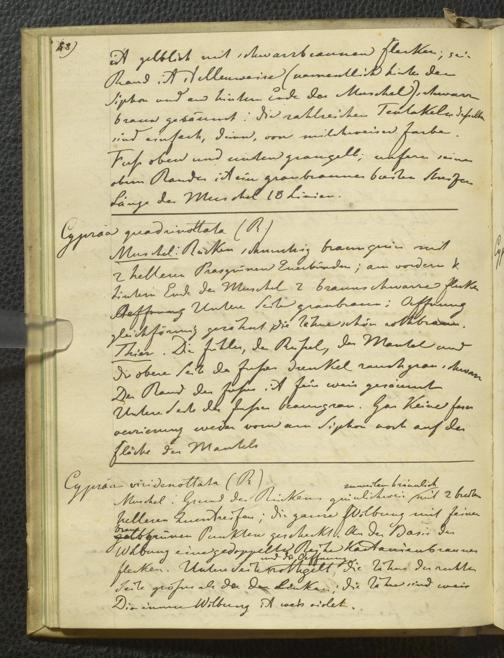 48)
ist gelblich mit schwarzbraunen Flecken; sein
Rand ist stellenweise (namentlich hinter dem
Sipho und am hintern Ende der Muschel) schwarz
braun gesäumt: die zahlreichen Tentakeln desselben
sind einfach, dünn, von milchweiser Farbe.
Fuss oben und unten graugelb; unfern seines
obern Randes ist ein graubraunes breiten Streifen
Länge der Muschel 18 Linien.
Cypräa quadrinottata (R)
Muschel: Rücken schmutzig braungrün mit
2 helleren Querbinden; am vordern &
hintern Ende der Muschel 2 braunschwarze Flecke
Untere Seite graubraun; Öffnung
gleichförmig gezähnt, die Zähne schön rothbraun.
Thier. Die Fühler, der Rüssel, der Mantel und
die obere Seite des Fuses dunkel rauchgrau, schwarz
Der Rand des Fuses ist fein weis gesäumt
Untere Seite des Fuses braungrau. Gar keine
weder vorn am Sipho noch auf der
Fläche des Mantels
Cypräa viridinottata (R)
zuweilen bräunlich
Muschel: Grund des Rückens grünlichweis mit 2 breiten
helleren Querstreifen; die ganze Wölbung mit feinen
braun
gelbgrünen Punkten gefleckt. An der Basis der
Wölbung eine gedoppelte Reihe kastanienbrauner
und die Öffnung
Flecken. Untere Seite rothgelb, die Zähne der rechten
Seite gröser als die der Linken; die Zähne sind weis
Die innere Wölbung ist weis violet.